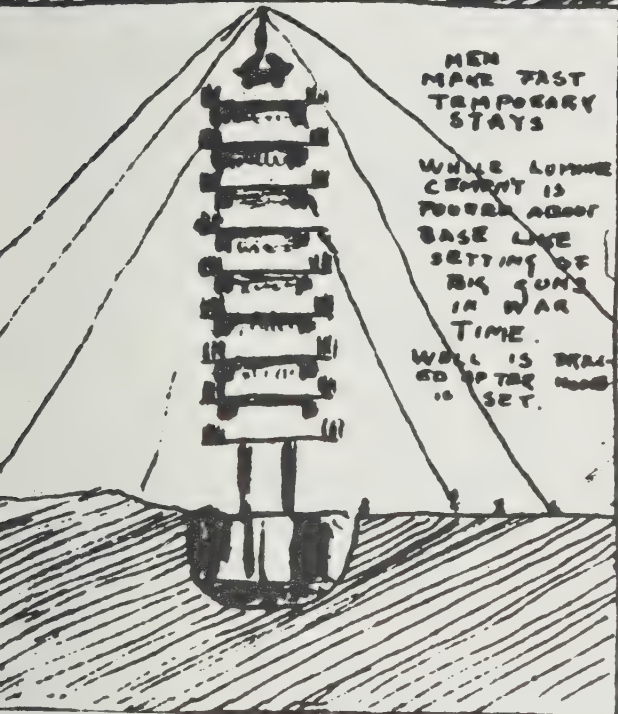 MEN
MAKE FAST
TEMPORARY
STAYS
WHILE
CEMENT IS
POURED ABOUT
BASE LIKE
SETTING OF
BIG GUNS
IN WAR
TIME.
WELL IS
ED AFTER
IS SET.